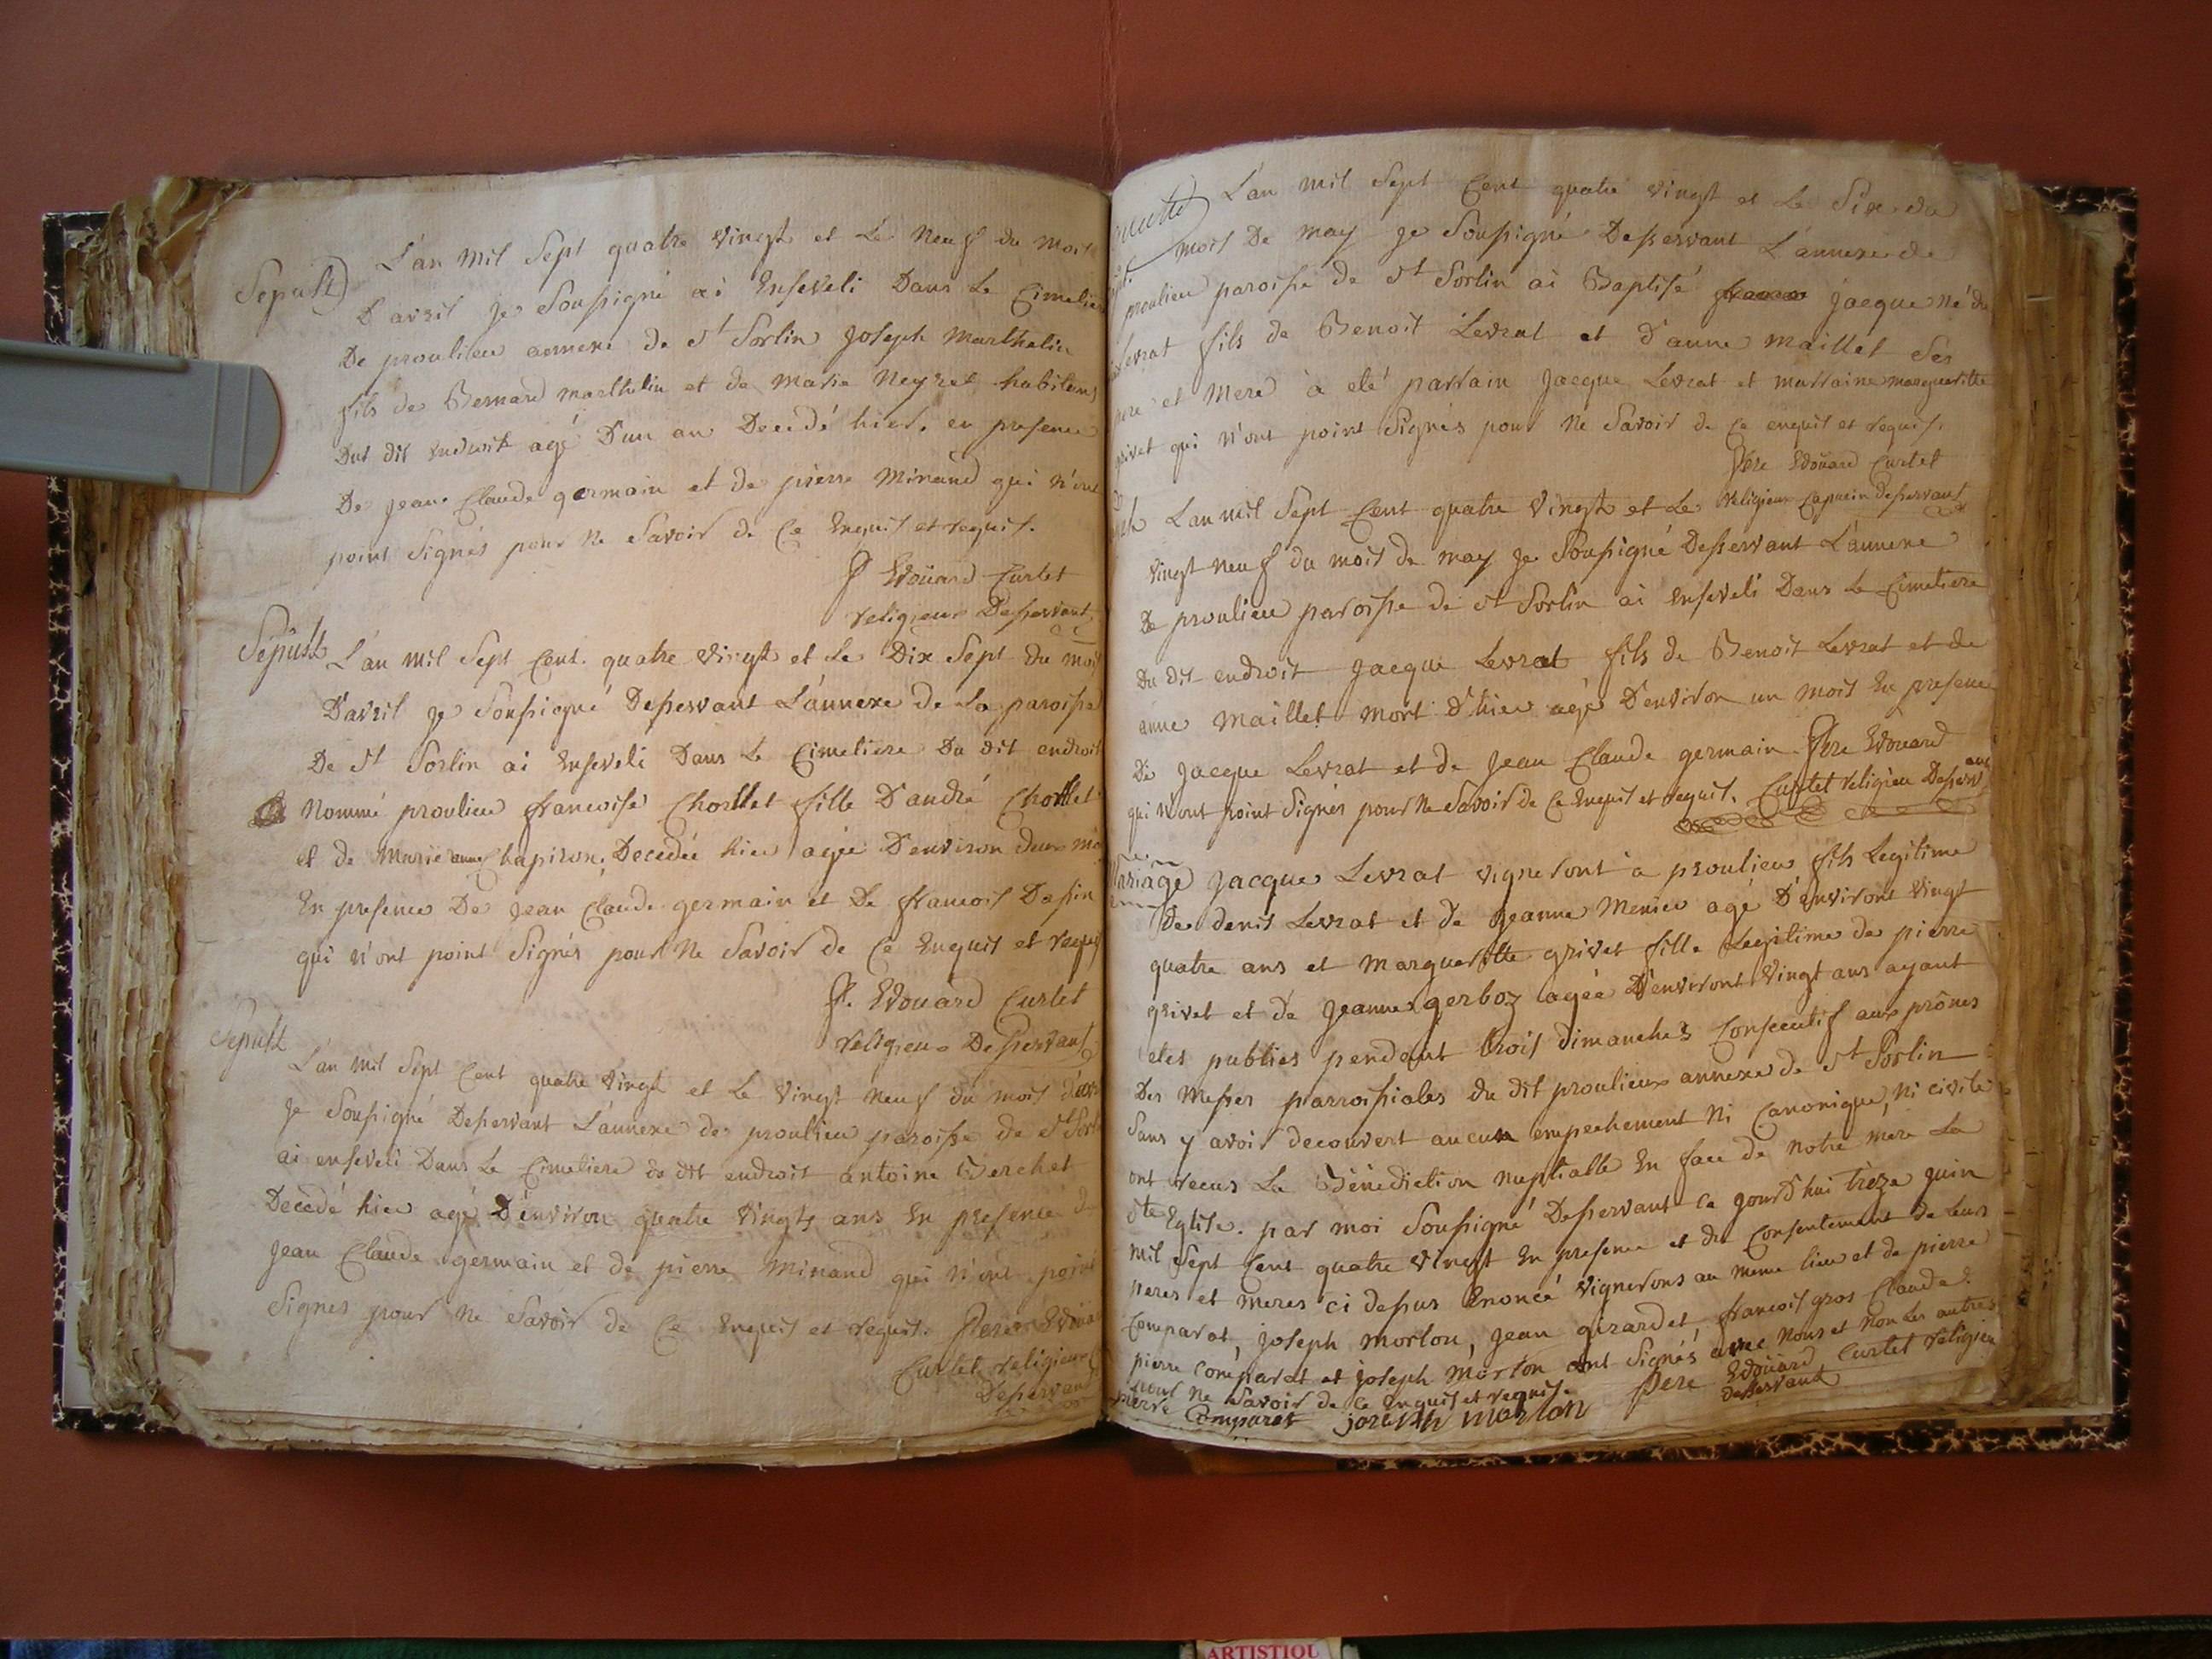 Sepult
L'an mil Sept quatre vingt et Le neuf du mois
D'avril Je Soussigné ai Enseveli Dans Le Cimetiere
De proulieu annexe de St Sorlin Joseph Marthelin
fils de Bernard marthelin et de marie Neyret habitens
Dut dit endroit agé D'un an Decedé hier. en presence
De jean Claude germain et de pierre Minand qui n'ont
point Signés pour Ne Savoir de Ce Enquis et requis.
P Edoüard Curtet
religieux Desservant
Sépult
L'an mil Sept Cent quatre vingt et Le Dix Sept du mois
D'avril Je Soussigné Desservant L'annexe de La paroisse
De St Sorlin ai Enseveli Dans Le Cimetiere Du dit endroit
Nommé proulieu francoise Chorllet fille D'andré Chorllet
et de Marie anne Chapiron, Decedée hier agée D'environ deux
En presence De Jean Claude germain et De francois Dassin
qui n'ont point Signés pour Ne Savoir de Ce Enquis et requis
P. Edouard Curtet
religieux Desservant
Sepult
L'an mil Sept Cent quatre vingt et Le Vingt neuf du mois
Je Soussigné Desservant L'annexe de proulieu paroisse de St Sorl
ai enseveli Dans Le Cimetiere du dit endroit antoine Berchet
Decedé hier agé D'environ quatre Vingts ans En presence de
Jean Claude germain et de pierre Minand qui n'ont point
Signés pour Ne Savoir de Ce Enquis et requis. Pere Edoua
Curtet religieux
Desservant
L'an mil Sept Cent quatre vingt et Le Six du
mois De may Je Soussigné Desservant L'annexe de
proulieu paroisse de St Sorlin ai Baptisé Jacque né du
Levrat fils de Benoit Levrat et D'anne Maillet Ses
pere et Mere à eté parrain Jacque Levrat et marraine margueritte
grivet qui n'ont point Signés pour Ne Savoir de Ce enquis et requis.
Pere Edoüard Curtet
religieux Capucin desservant
L'an mil Sept Cent quatre Vingt et Le
Vingt neuf du mois de may Je Soussigné Desservant L'annexe
De proulieu paroisse de St Sorlin ai Enseveli Dans Le Cimetiere
Du dit endroit Jacque Levrat fils de Benoit Levrat et de
anne Maillet mort D'hier agé D'environ un mois En presence
De Jacque Levrat et de Jean Claude germain Pere Edoüard
qui n'ont point Signés pour Ne Savoir de Ce Enquis et requis. Curtet religieu Desservant
Mariage
Jacque Levrat vigneront à proulieu fils Legitime
De denis Levrat et de Jeanne Menier agé D'environt vingt
quatre ans et Margueritte grivet fille Legitime de pierre
grivet et de Jeanne gerboz agée D'environt Vingt ans ayant
etes publies pendant trois Dimanches Consecutif aux prônes
Des Messes parroissiales du dit proulieux annexe de St Sorlin
Sans y avoir decouvert aucun empechement Ni Canonique, Ni civile
ont recus La Bénediction nuptialle En face de Notre mere La
Ste Eglise. par moi Soussigné Desservant Ce jourd'hui treze juin
mil Sept Cent quatre vingt En presence et du Consentement de leurs
peres et meres ci dessus Enoncé Vignerons au meme lieu et de pierre
Comparat, Joseph morton, Jean girardet, francois gros Claude.
pierre Comparat et joseph Morton ont Signés avec Nous et Non Les autres
pour Ne Savoir de Ce Enquis et requis. Pere Edoüard Curtet religieu
desservant
pierre Comparat joseph morton
ARTISTIQU